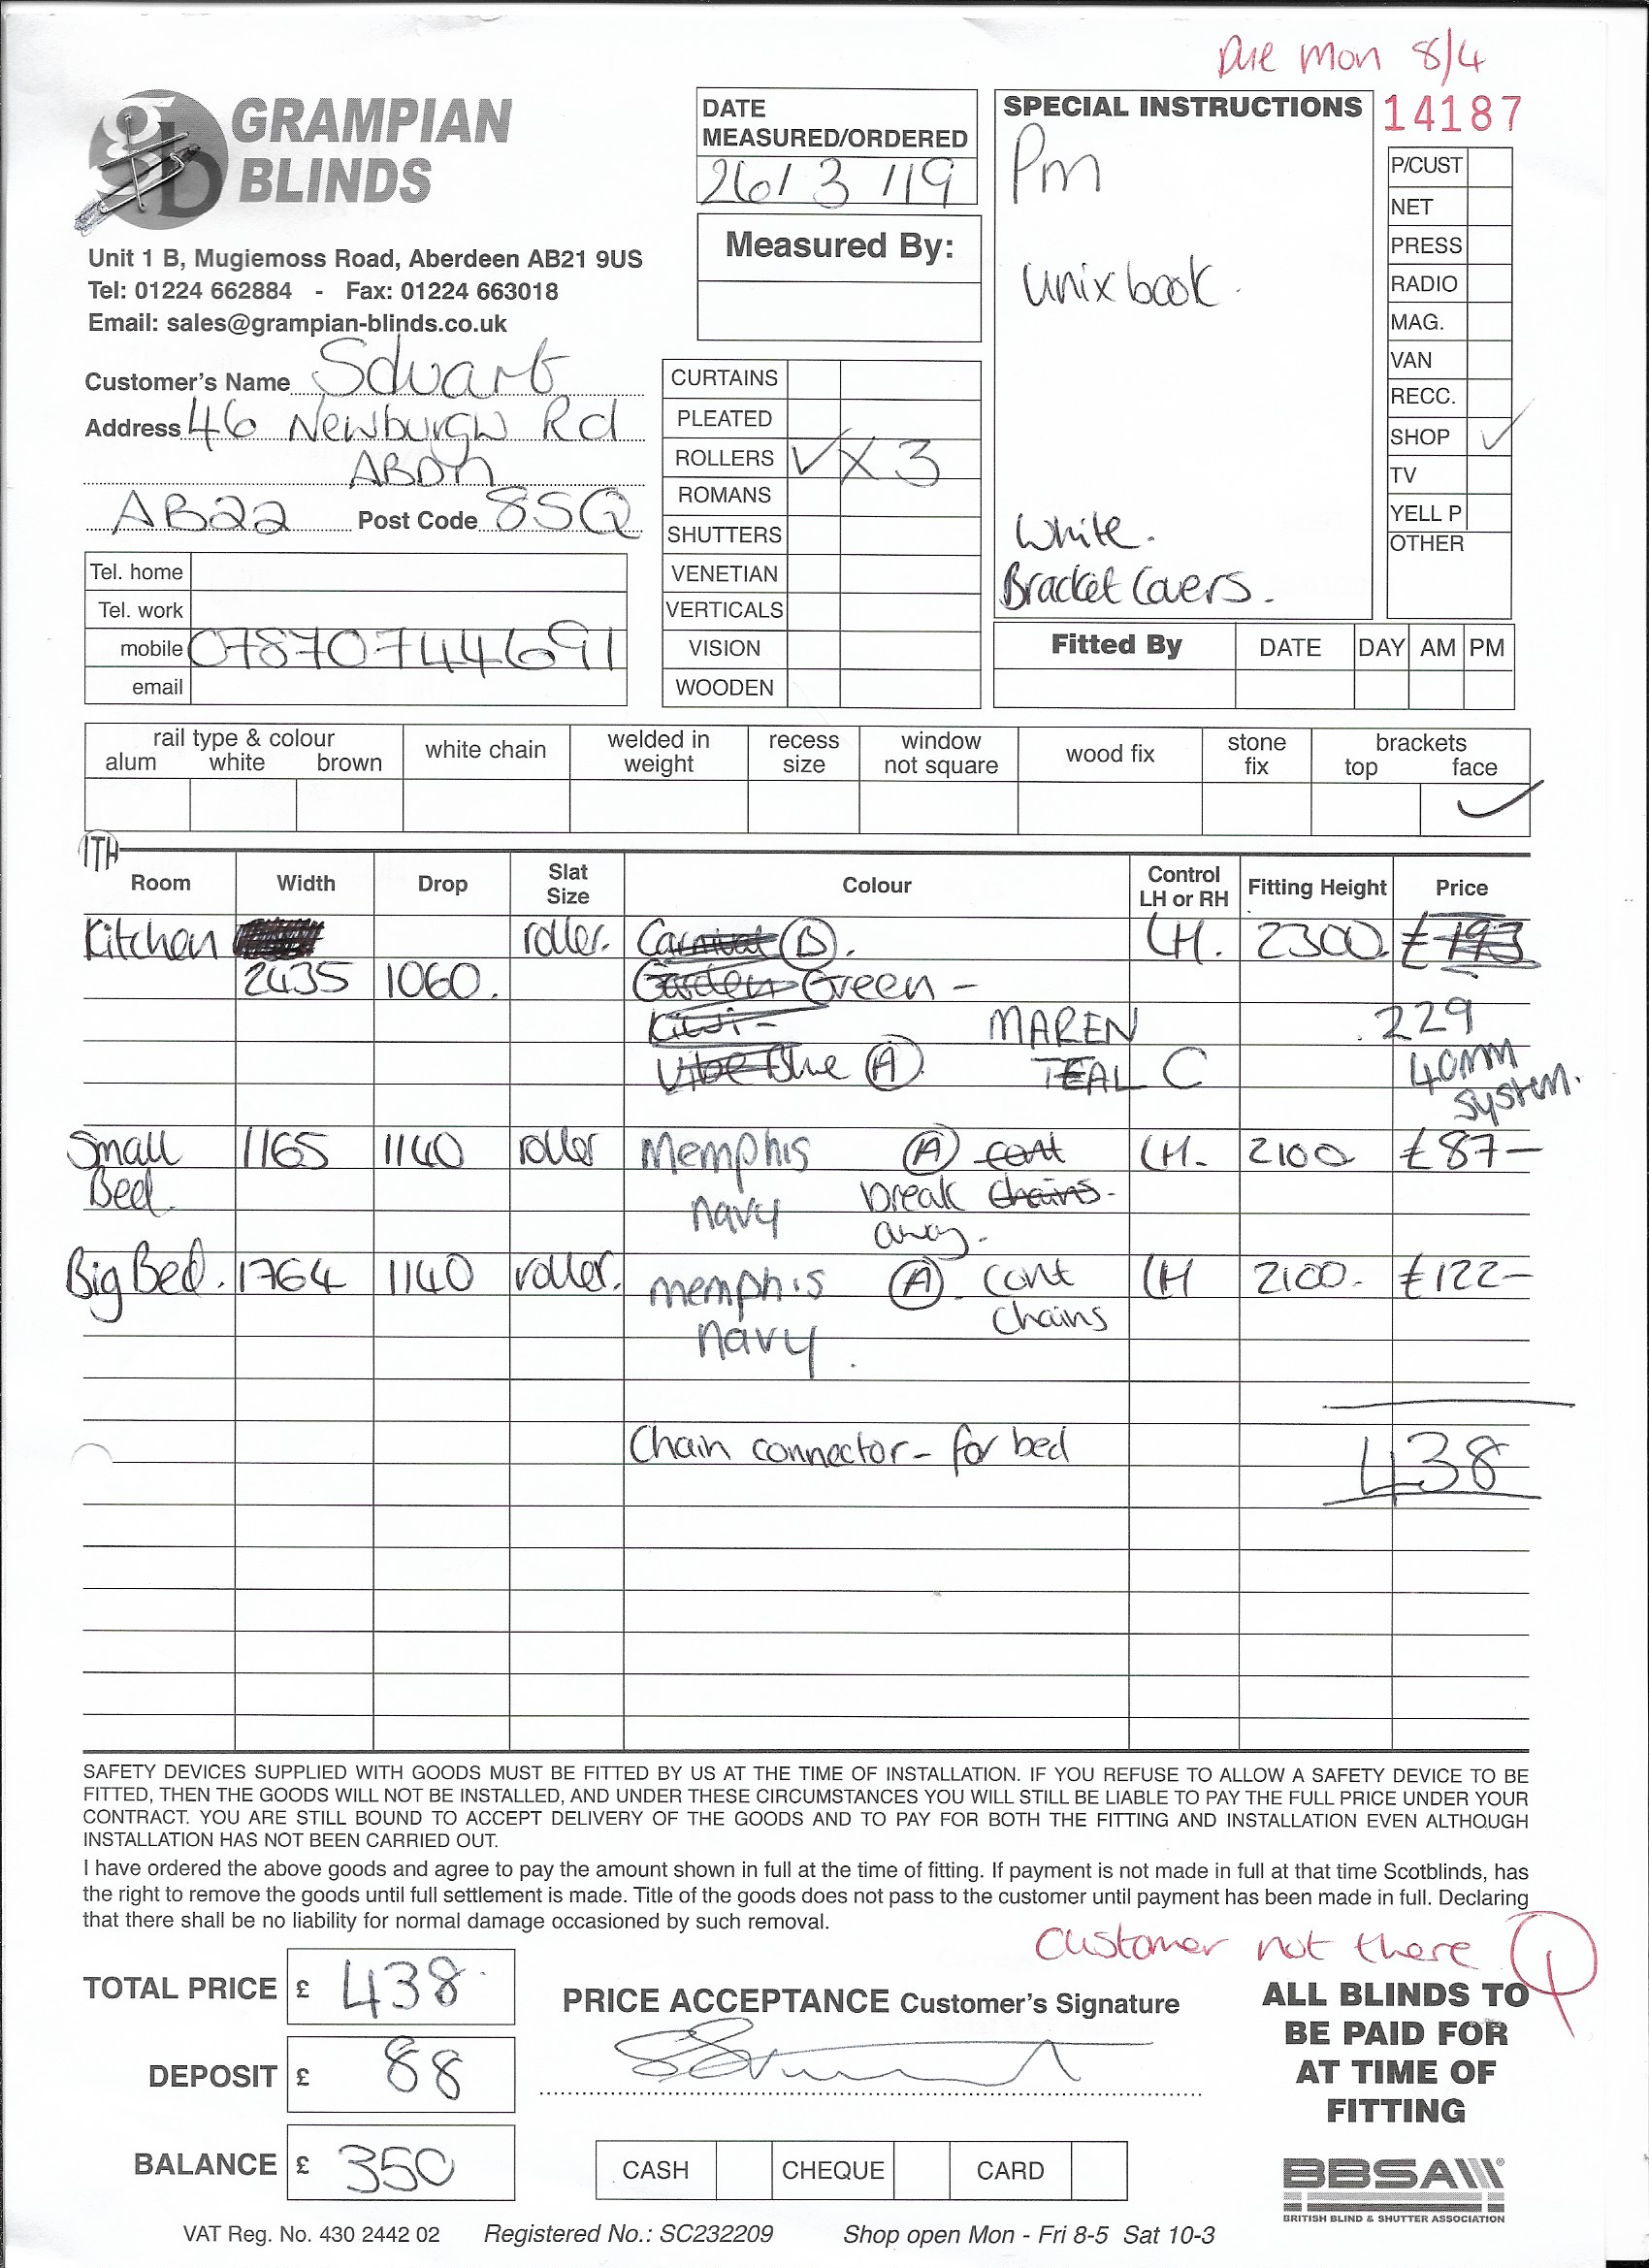 Due Mon 8/4
GRAMPIAN
BLINDS
Unit 1 B, Mugiemoss Road, Aberdeen AB21 9US
Tel: 01224 662884 - Fax: 01224 663018
Email: sales@grampian-blinds.co.uk
DATE
MEASURED/ORDERED
26/3/19
Measured By:
SPECIAL INSTRUCTIONS
Pm
Unix book.
White.
Bracket Covers.
14187
P/CUST
NET
PRESS
RADIO
MAG.
VAN
RECC.
SHOP ✓
TV
YELL P
OTHER
Customer's Name
Address 46 Newburgh Rd
ABDN
AB22 Post Code 8SQ
Tel. home
Tel. work
mobile 07870744691
email
CURTAINS
PLEATED
ROLLERS ✓ x 3
ROMANS
SHUTTERS
VENETIAN
VERTICALS
VISION
WOODEN
Fitted By DATE DAY AM PM
rail type & colour
alum white brown
white chain
welded in
weight
recess
size
window
not square
wood fix
stone
fix
brackets
top face ✓
1TH
Room Width Drop Slat Size Colour Control LH or RH Fitting Height Price
Kitchen roller. Carnival (B). LH. 2300. £193
2435 1060. Garden Green -
Kiwi - MAREN 229
Vibe Blue (A) TEAL C 40mm
system.
Small 1165 1140 roller Memphis (A) cont LH. 2100 £87-
Bed. navy break chains.
away.
Big Bed. 1764 1140 roller. memphis (A). cont LH 2100. £122-
navy. chains
Chain connector - for bed 438
SAFETY DEVICES SUPPLIED WITH GOODS MUST BE FITTED BY US AT THE TIME OF INSTALLATION. IF YOU REFUSE TO ALLOW A SAFETY DEVICE TO BE
FITTED, THEN THE GOODS WILL NOT BE INSTALLED, AND UNDER THESE CIRCUMSTANCES YOU WILL STILL BE LIABLE TO PAY THE FULL PRICE UNDER YOUR
CONTRACT. YOU ARE STILL BOUND TO ACCEPT DELIVERY OF THE GOODS AND TO PAY FOR BOTH THE FITTING AND INSTALLATION EVEN ALTHOUGH
INSTALLATION HAS NOT BEEN CARRIED OUT.
I have ordered the above goods and agree to pay the amount shown in full at the time of fitting. If payment is not made in full at that time Scotblinds, has
the right to remove the goods until full settlement is made. Title of the goods does not pass to the customer until payment has been made in full. Declaring
that there shall be no liability for normal damage occasioned by such removal.
Customer not there
TOTAL PRICE £ 438
DEPOSIT £ 88
BALANCE £ 350
PRICE ACCEPTANCE Customer's Signature
CASH CHEQUE CARD
ALL BLINDS TO
BE PAID FOR
AT TIME OF
FITTING
BBSA
BRITISH BLIND & SHUTTER ASSOCIATION
VAT Reg. No. 430 2442 02 Registered No.: SC232209 Shop open Mon - Fri 8-5 Sat 10-3